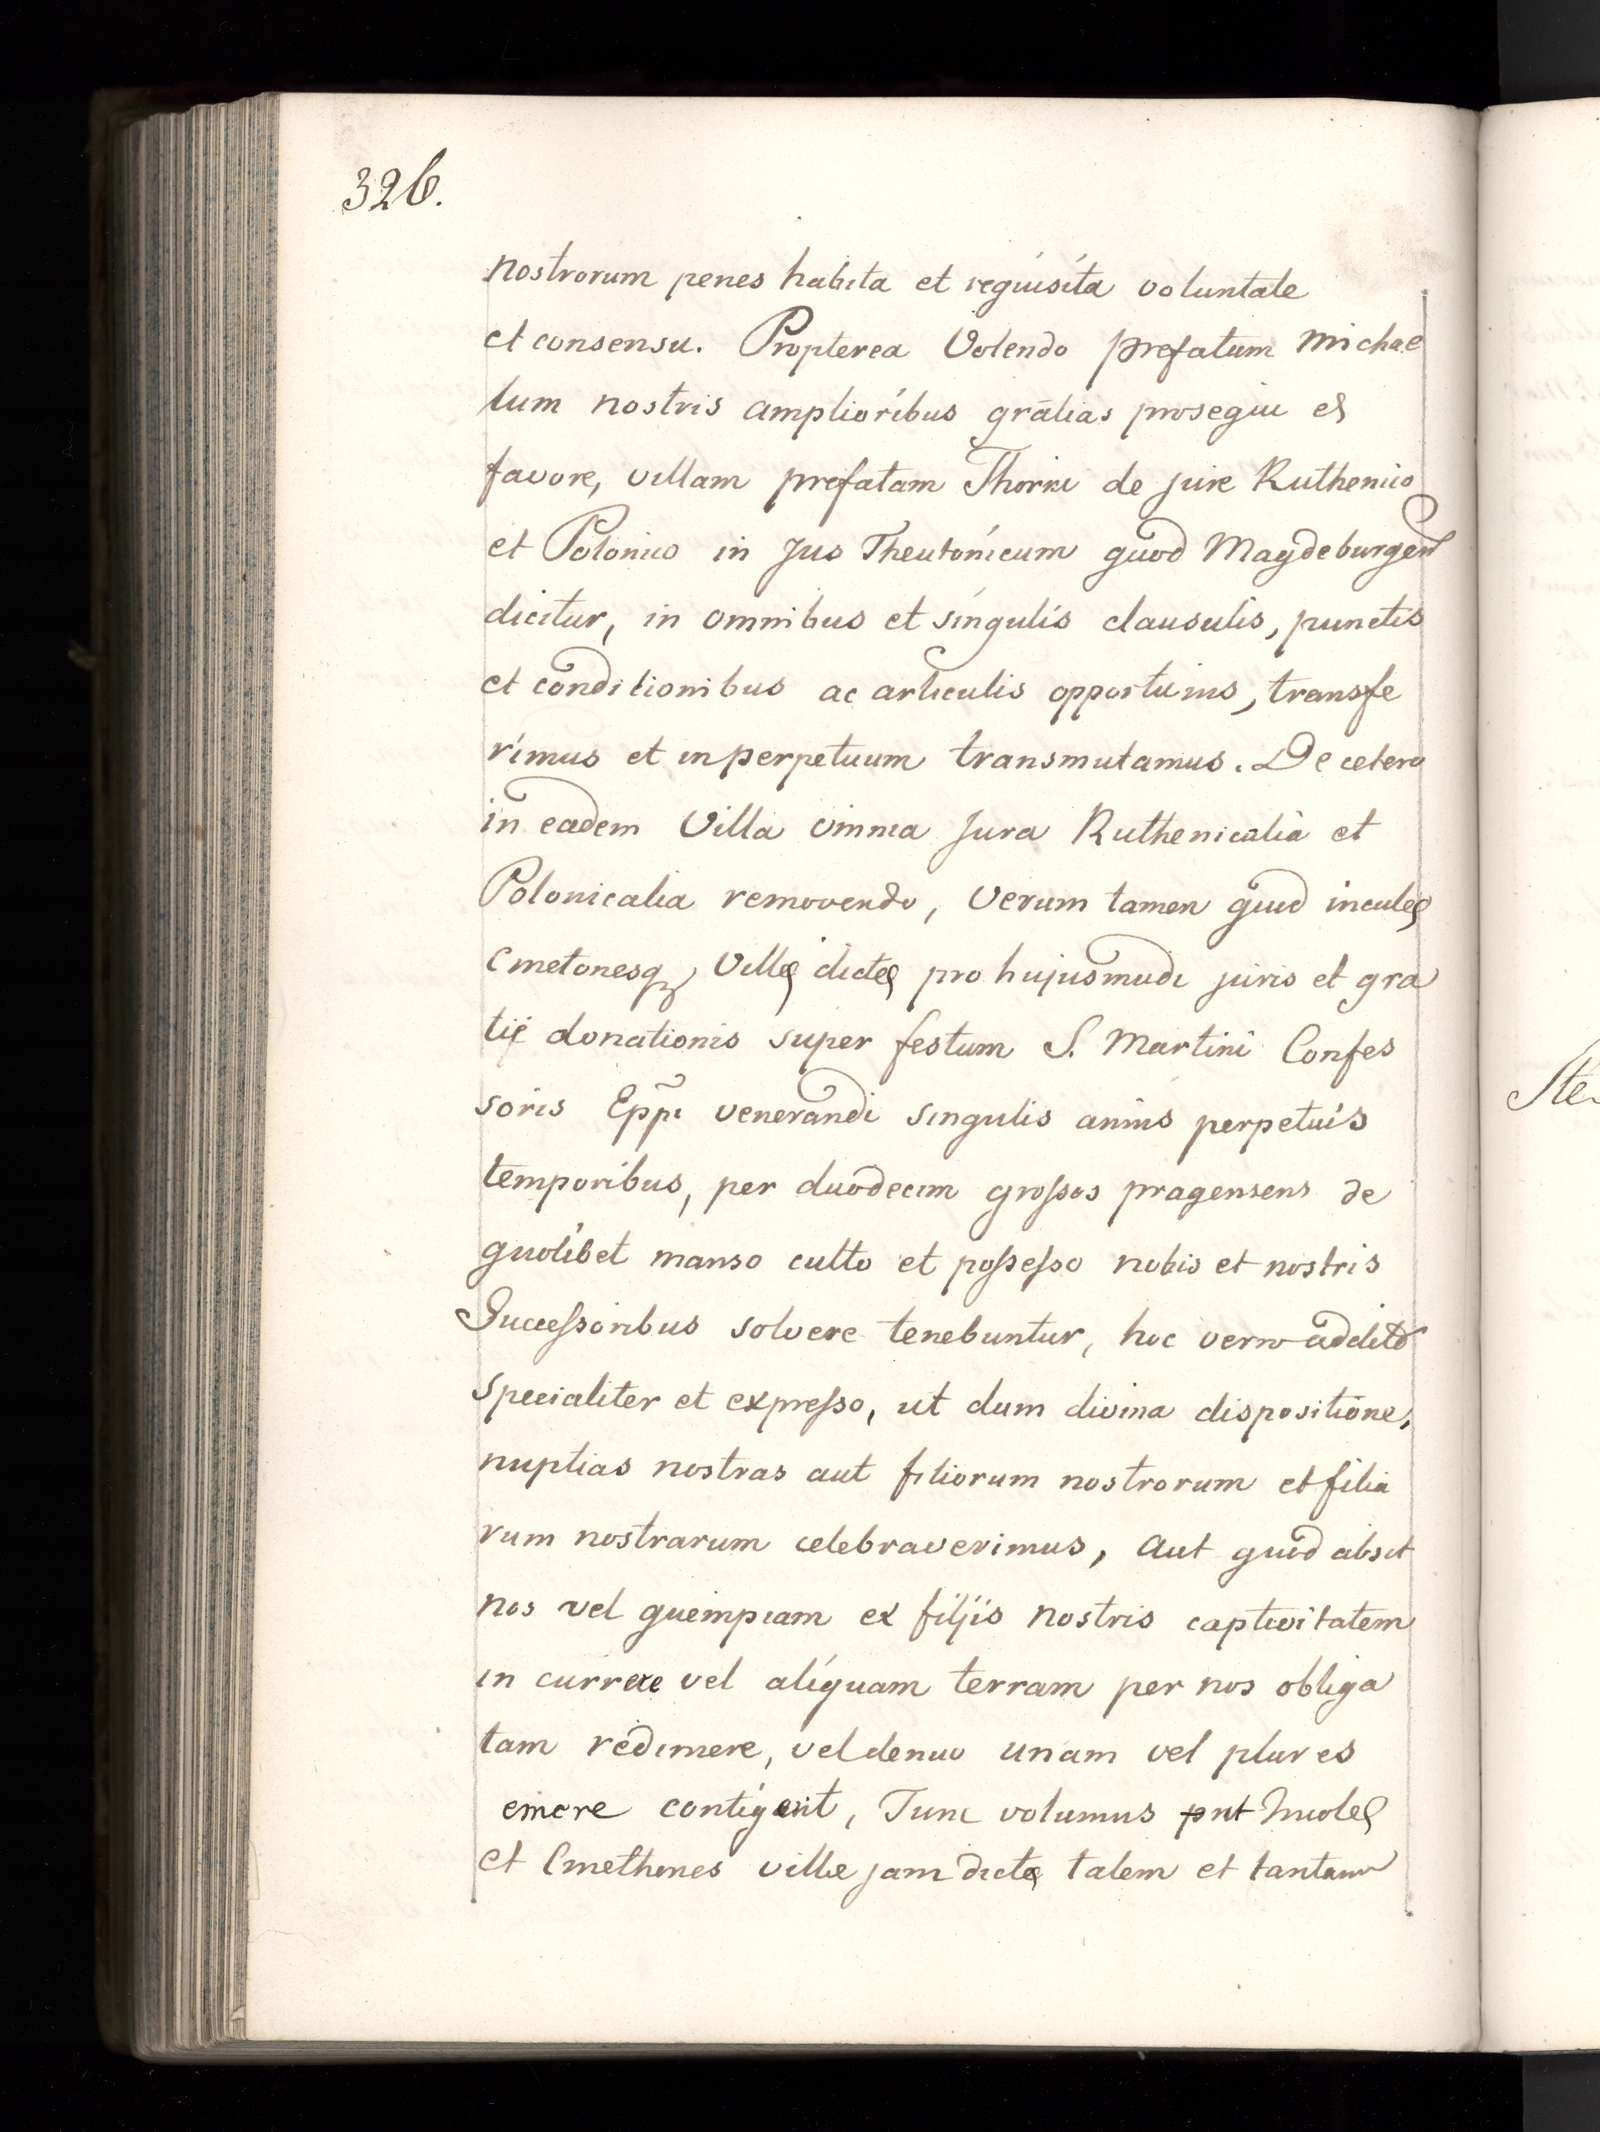 326.
nostrorum penes habita et requisita voluntate
et consensu. Propterea Volendo prefatum Michae
lum nostris amplioribus gratias prosequi et
favore, villam prefatam Thorki de jure Ruthenico
et Polonico in Jus Theutonicum quod Magdeburgen
dicitur, in omnibus et singulis clausulis, punctis
et conditionibus ac articulis opportunis, transfe
rimus et in perpetuum transmutamus. De cetero
in eadem Villa omnia Jura Ruthenicalia et
Polonicalia removendo, verum tamen quod inculę
Cmetonesq; Villę dictę pro hujusmodi juris et gra
tię donationis super festum S. Martini Confes
soris Eppi venerandi singulis annis perpetuis
temporibus, per duodecim grossos pragensens de
quolibet manso culto et possesso nobis et nostris
Successoribus solvere tenebuntur, hoc vero addito
specialiter et expresso, ut dum divina dispositione,
nuptias nostras aut filiorum nostrorum et filia
rum nostrarum celebraverimus, Aut quod absit
nos vel quempiam ex filijs nostris captivitatem
in currere vel aliquam terram per nos obliga
tam redimere, vel denuo unam vel plures
emere contigerit, Tunc volumus put Incolę
et Cmethones villæ jam dictę talem et tantam
Ste